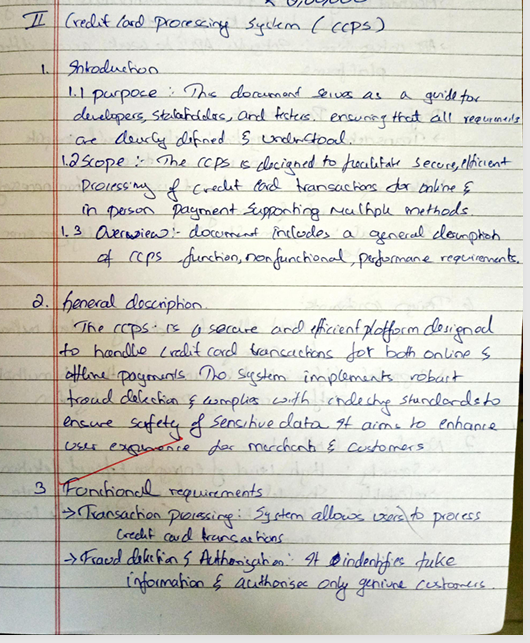 II Credit Card Processing System (CCPS)
1. Introduction
1.1 purpose : This document serves as a guide for
developers, stakeholders, and testers. ensuring that all requirements
are clearly defined & understood.
1.2 Scope : The CCPS is designed to facilitate secure, efficient
Processing of credit card transactions for online &
in person payment supporting multiple methods
1.3 Overview :- document includes a general description
of CCPS, function, nonfunctional, performance requirements.
2. General description.
The CCPS is a secure and efficient platform designed
to handle credit card transactions for both online &
offline payments. The system implements robust
fraud detection & complies with industry standards to
ensure safety of sensitive data. It aims to enhance
user experience for merchants & customers
3 Functional requirements
→ Transaction processing : System allows users to process
credit card transactions
→ Fraud detection & Authorisation : It indentifies fake
information & authorises only genuine customers.